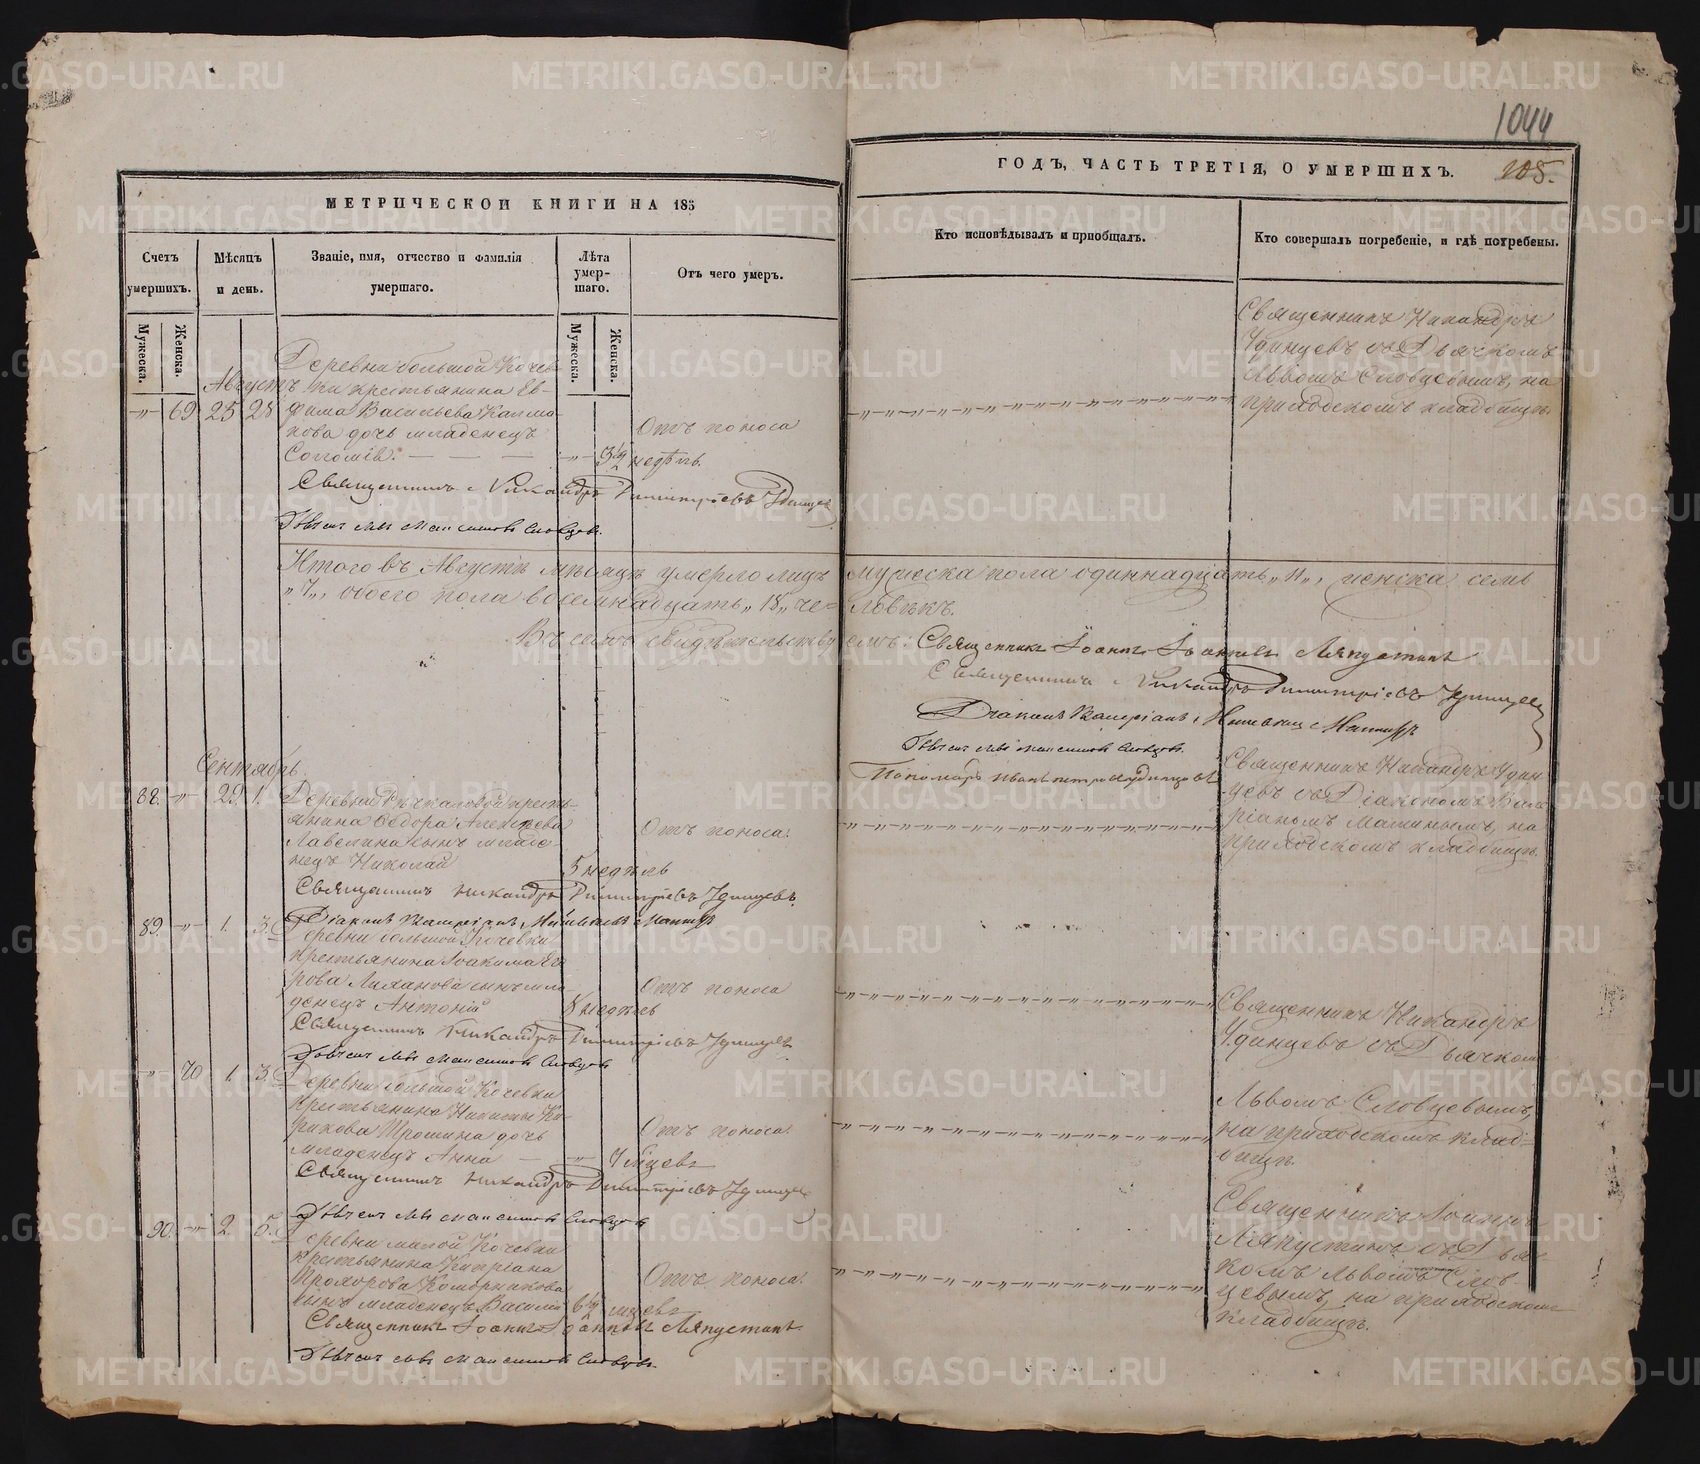 1044
МЕТРИЧЕСКОЙ КНИГИ НА 185
ГОДЪ, ЧАСТЬ ТРЕТІЯ, О УМЕРШИХЪ.
105.
Счетъ умершихъ.
Мѣсяцъ и день.
Званіе, имя, отчество и фамилія умершаго.
Лѣта умершаго.
Отъ чего умеръ.
Кто исповѣдывалъ и пріобщалъ.
Кто совершалъ погребеніе, и гдѣ погребены.
Мужеска.
Женска.
Мужеска.
Женска.
Августъ
69 25 28
Деревни большой Кочев-
ки крестьянина Ев-
фима Васильева Калма-
кова дочь младенецъ
Соломія.
3½ недѣль.
Отъ поноса
Священникъ Никандръ
Удинцевъ съ Дьячкомъ
Львомъ Словцовымъ, на
приходскомъ кладбищѣ.
Священникъ Никандръ Димитріевъ Удинцевъ
Дьячекъ Левъ Максимовъ Словцовъ.
Итого въ Августѣ мѣсяцѣ умерло лицъ мужеска пола одиннадцать „11„, женска семь
„7„, обоего пола восемнадцать „18„ че-ловѣкъ.
Въ семъ свидѣтельствуемъ: Священникъ Іоаннъ Іоанновъ Ляпустинъ
Священникъ Никандръ Димитріевъ Удинцевъ
Діаконъ Валеріанъ Маминъ
Дьячекъ Левъ Максимовъ Словцовъ.
Пономарь Иванъ Петровъ Удинцовъ
Сентябрь
88. 29. 1.
Деревни крестья-
янина Ѳедора Алексѣева
сынъ младе-
нецъ Николай
5 недѣль
Отъ поноса.
Священникъ Никандръ Удин-
цевъ съ Діакономъ Вале-
ріаномъ Маминымъ, на
приходскомъ кладбищѣ.
Священникъ Никандръ Димитріевъ Удинцевъ.
Діаконъ Валеріанъ Маминъ
89. 1. 3.
Деревни большой Кочевки
крестьянина Іоакима Его-
рова сынъ мла-
денецъ Антоній
8 недѣль
Отъ поноса
Священникъ Никандръ
Удинцевъ съ Дьячкомъ
Священникъ Никандръ Димитріевъ Удинцевъ
Дьячекъ Левъ Максимовъ Словцовъ
70 1. 3.
Деревни большой Кочевки
крестьянина Никиты Ки-
рикова Трошина дочь
младенецъ Анна
Отъ поноса.
Львомъ Словцевымъ,
на приходскомъ клад-
бищѣ.
Священникъ Никандръ Димитріевъ Удинцевъ
Дьячекъ Левъ Максимовъ Словцовъ
90. 2. 5.
Деревни малой Кочевки
крестьянина Кипріана
Прохорова
сынъ младенецъ Василій
6½ мцевъ
Отъ поноса.
Священникъ Іоаннъ
Ляпустинъ съ Дьяч-
комъ Львомъ Слов-
цевымъ, на приходскомъ
кладбищѣ.
Священникъ Іоаннъ Іоанновъ Ляпустинъ
Дьячекъ Левъ Максимовъ Словцовъ.
METRIKI.GASO-URAL.RU